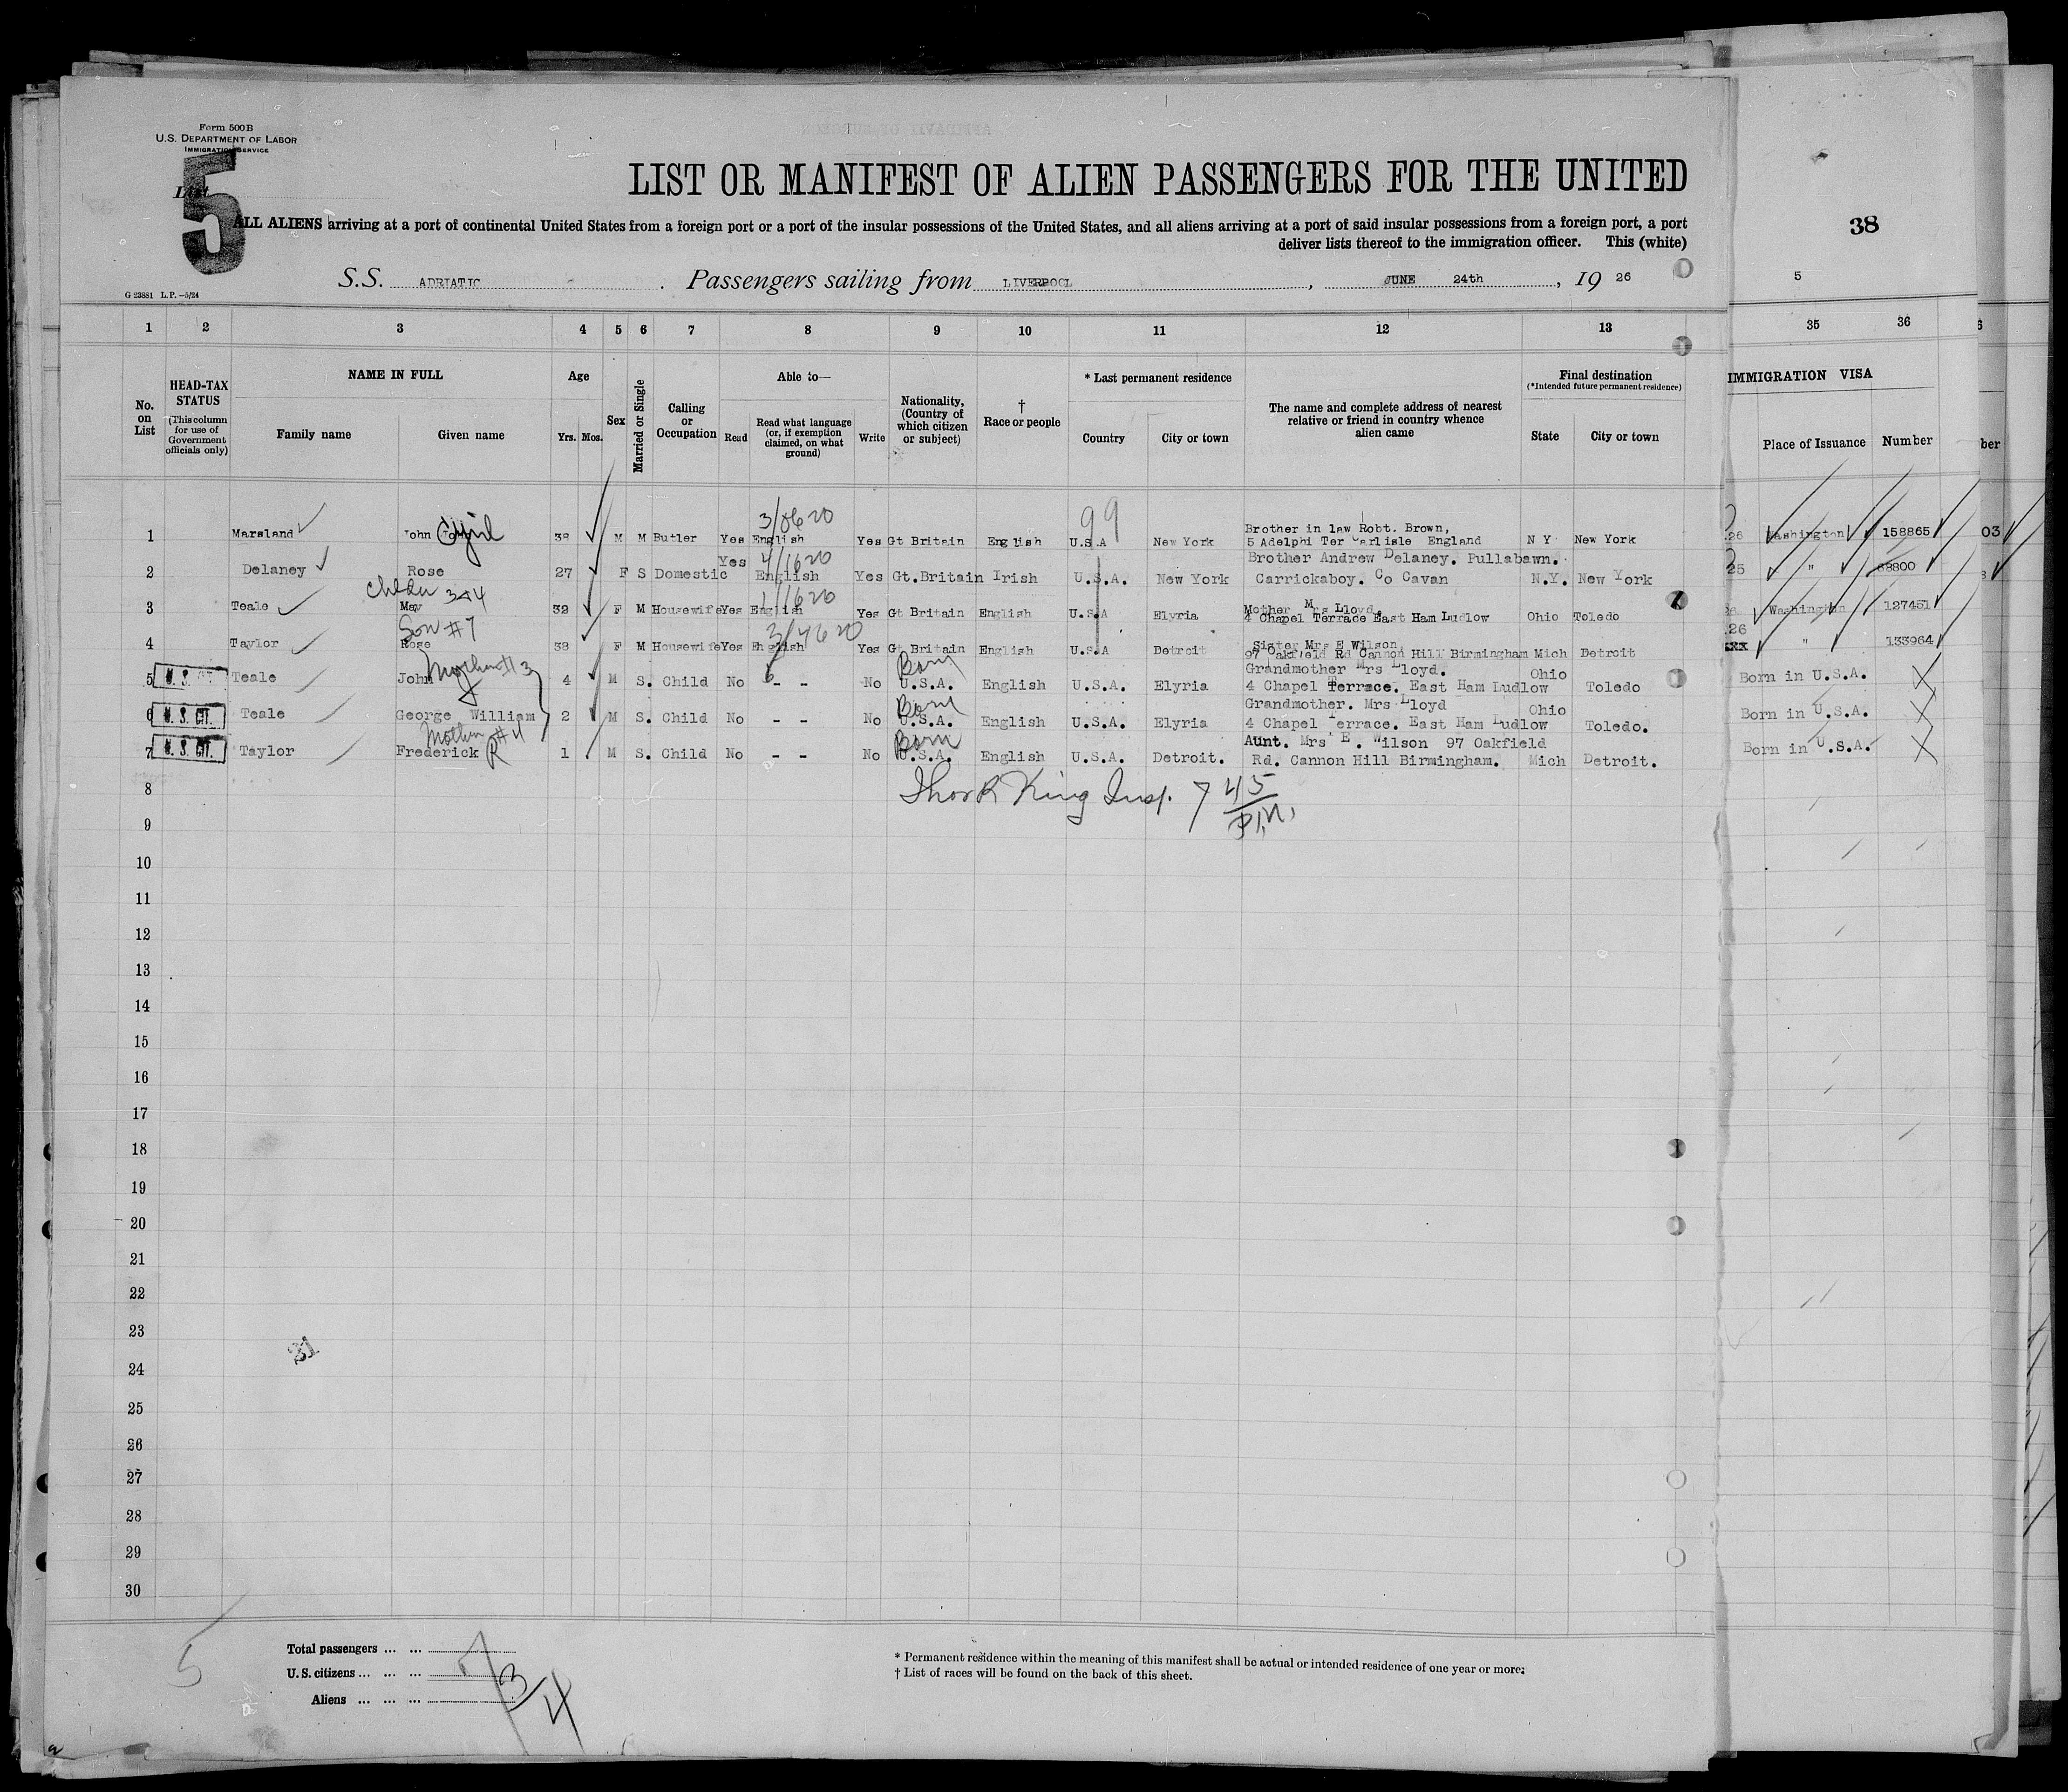 Form 500B
U.S. DEPARTMENT OF LABOR
IMMIGRATION SERVICE
List
5
LIST OR MANIFEST OF ALIEN PASSENGERS FOR THE UNITED
ALL ALIENS arriving at a port of continental United States from a foreign port or a port of the insular possessions of the United States, and all aliens arriving at a port of said insular possessions from a foreign port, a port
deliver lists thereof to the immigration officer. This (white)
38
S.S. ADRIATIC . Passengers sailing from LIVERPOOL , JUNE 24th , 19 26
5
G 23881 L.P.—5/24
1 2 3 4 5 6 7 8 9 10 11 12 13 35 36
No. on List
HEAD-TAX STATUS
(This column for use of Government officials only)
NAME IN FULL
Family name
Given name
Age
Yrs. Mos.
Sex
Married or Single
Calling or Occupation
Able to—
Read
Read what language (or, if exemption claimed, on what ground)
Write
Nationality, (Country of which citizen or subject)
† Race or people
* Last permanent residence
Country
City or town
The name and complete address of nearest relative or friend in country whence alien came
Final destination
(*Intended future permanent residence)
State
City or town
IMMIGRATION VISA
Place of Issuance
Number
ber
3/0620 99
1 Marsland John Cyril 38 M M Butler Yes English Yes Gt Britain English U.S.A New York Brother in law Robt. Brown,
5 Adelphi Ter Carlisle England N Y New York 26 Washington 158865 03
4/1620
2 Delaney Rose 27 F S Domestic Yes English Yes Gt.Britain Irish U.S.A. New York Brother Andrew Delaney. Pullabawn.
Carrickaboy. Co Cavan N.Y. New York 25 " 68800
1/1620
3 Teale May 32 F M Housewife Yes English Yes Gt Britain English U.S.A Elyria Mother Mrs Lloyd,
4 Chapel Terrace East Ham Ludlow Ohio Toledo Washington 127451
Son #7 3/4620
4 Taylor Rose 38 F M Housewife Yes English Yes Gt Britain English U.S.A Detroit Sister Mrs E Wilson
97 Oakfield Rd Cannon Hill Birmingham Mich Detroit 26 " 133964
Mother # 3 Born
5 U.S. CIT. Teale John 4 M S. Child No - - No U.S.A. English U.S.A. Elyria Grandmother Mrs Lloyd.
4 Chapel Terrace. East Ham Ludlow Ohio Toledo Born in U.S.A.
Born
6 U.S. CIT. Teale George William 2 M S. Child No - - No U.S.A. English U.S.A. Elyria Grandmother. Mrs Lloyd
4 Chapel Terrace. East Ham Ludlow Ohio Toledo. Born in U.S.A.
Mother #4 Born
7 U.S. CIT. Taylor Frederick R 1 M S. Child No - - No U.S.A. English U.S.A. Detroit. Aunt. Mrs E. Wilson 97 Oakfield
Rd. Cannon Hill Birmingham. Mich Detroit. Born in U.S.A.
8 King Insp. 7 45 P.M.
9
10
11
12
13
14
15
16
17
18
19
20
21
22
23
24
25
26
27
28
29
30
5
Total passengers ... ... 7
U.S. citizens ... ... ... 3
Aliens ... ... ... 4
* Permanent residence within the meaning of this manifest shall be actual or intended residence of one year or more.
† List of races will be found on the back of this sheet.